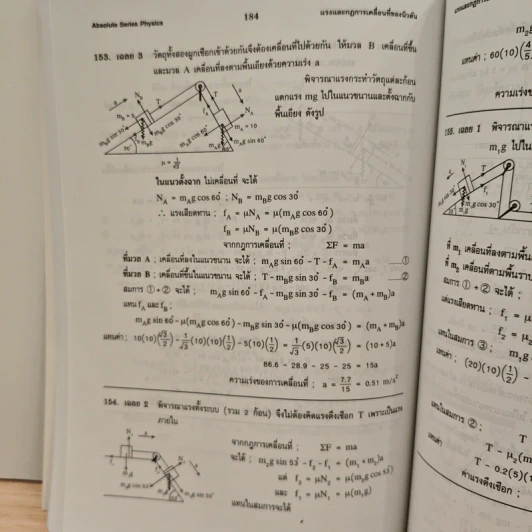 Absolute Series Physics
184
แรงและกฎการเคลื่อนที่ของนิวตัน
153. เฉลย 3 วัตถุทั้งสองผูกเชือกเข้าด้วยกันจึงต้องเคลื่อนที่ไปด้วยกัน ให้มวล B เคลื่อนที่ขึ้น
และมวล A เคลื่อนที่ลงตามพื้นเอียงด้วยความเร่ง a
พิจารณาแรงกระทำวัตถุแต่ละก้อน
แตกแรง mg ไปในแนวขนานและตั้งฉากกับ
พื้นเอียง ดังรูป
ในแนวตั้งฉาก ไม่เคลื่อนที่ จะได้
N_A = m_A g cos 60° ; N_B = m_B g cos 30°
∴ แรงเสียดทาน ; f_A = μN_A = μ(m_A g cos 60°)
f_B = μN_B = μ(m_B g cos 30°)
จากกฎการเคลื่อนที่ ; ΣF = ma
ที่มวล A ; เคลื่อนที่ลงในแนวขนาน จะได้ ; m_A g sin 60° - T - f_A = m_A a ①
ที่มวล B ; เคลื่อนที่ขึ้นในแนวขนาน จะได้ ; T - m_B g sin 30° - f_B = m_B a ②
สมการ ① + ② จะได้ ; m_A g sin 60° - f_A - m_B g sin 30° - f_B = (m_A + m_B)a
แทน f_A และ f_B ;
m_A g sin 60° - μ(m_A g cos 60°) - m_B g sin 30° - μ(m_B g cos 30°) = (m_A + m_B)a
แทนค่า ; 10(10)(√3/2) - 1/√3 (10)(10)(1/2) - 5(10)(1/2) - 1/√3 (5)(10)(√3/2) = (10+5)a
86.6 - 28.9 - 25 - 25 = 15a
ความเร่งของการเคลื่อนที่ ; a = 7.7/15 = 0.51 m/s²
154. เฉลย 2 พิจารณาแรงทั้งระบบ (รวม 2 ก้อน) จึงไม่ต้องคิดแรงดึงเชือก T เพราะเป็นแรง
ภายใน
จากกฎการเคลื่อนที่ ; ΣF = ma
จะได้ ; m₂g sin 53° - f₂ - f₁ = (m₁ + m₂)a
แต่ f₂ = μN₂ = μ(m₂g cos 53°)
และ f₁ = μN₁ = μ(m₁g)
แทนในสมการจะได้
แทนค่า ; 60(10)
ความเร่งของ
155. เฉลย 1 พิจารณาแรง
m₁g ไปใน
ที่ m₁ เคลื่อนที่ลงตามพื้น
ที่ m₂ เคลื่อนที่ตามพื้นราบ
สมการ ① + ② จะได้ ;
แต่แรงเสียดทาน ; f₁ = μ
f₂ =
แทนในสมการ ③ ; m₁g
แทนค่า ; (20)(10)(1/2) -
แทนในสมการ ② ; T
แทนค่า T - μ₂(m
T - 0.2(5)(1
ค่าแรงดึงเชือก ;